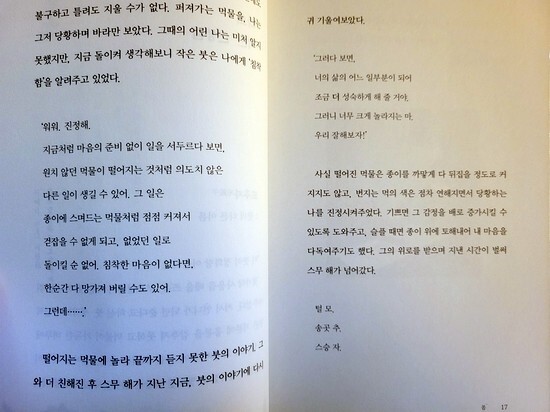 불구하고 틀려도 지울 수가 없다. 퍼져가는 먹물을, 나는
그저 당황하며 바라만 보았다. 그때의 어린 나는 미처 알지
못했지만, 지금 돌이켜 생각해보니 작은 붓은 나에게 '침착
함'을 알려주고 있었다.
'워워, 진정해.
지금처럼 마음의 준비 없이 일을 서두르다 보면,
원치 않던 먹물이 떨어지는 것처럼 의도치 않은
다른 일이 생길 수 있어. 그 일은
종이에 스며드는 먹물처럼 점점 커져서
걷잡을 수 없게 되고, 없었던 일로
돌이킬 순 없어. 침착한 마음이 없다면,
한순간 다 망가져 버릴 수도 있어.
그런데…….'
떨어지는 먹물에 놀라 끝까지 듣지 못한 붓의 이야기. 그
와 더 친해진 후 스무 해가 지난 지금, 붓의 이야기에 다시
귀 기울여보았다.
'그러다 보면,
너의 삶의 어느 일부분이 되어
조금 더 성숙하게 해 줄 거야.
그러니 너무 크게 놀라지는 마.
우리 잘해보자!'
사실 떨어진 먹물은 종이를 까맣게 다 뒤집을 정도로 커
지지도 않고, 번지는 먹의 색은 점차 연해지면서 당황하는
나를 진정시켜주었다. 기쁘면 그 감정을 배로 증가시킬 수
있도록 도와주고, 슬플 때면 종이 위에 토해내어 내 마음을
다독여주기도 했다. 그의 위로를 받으며 지낸 시간이 벌써
스무 해가 넘어갔다.
털 모,
송곳 추,
스승 자.
17